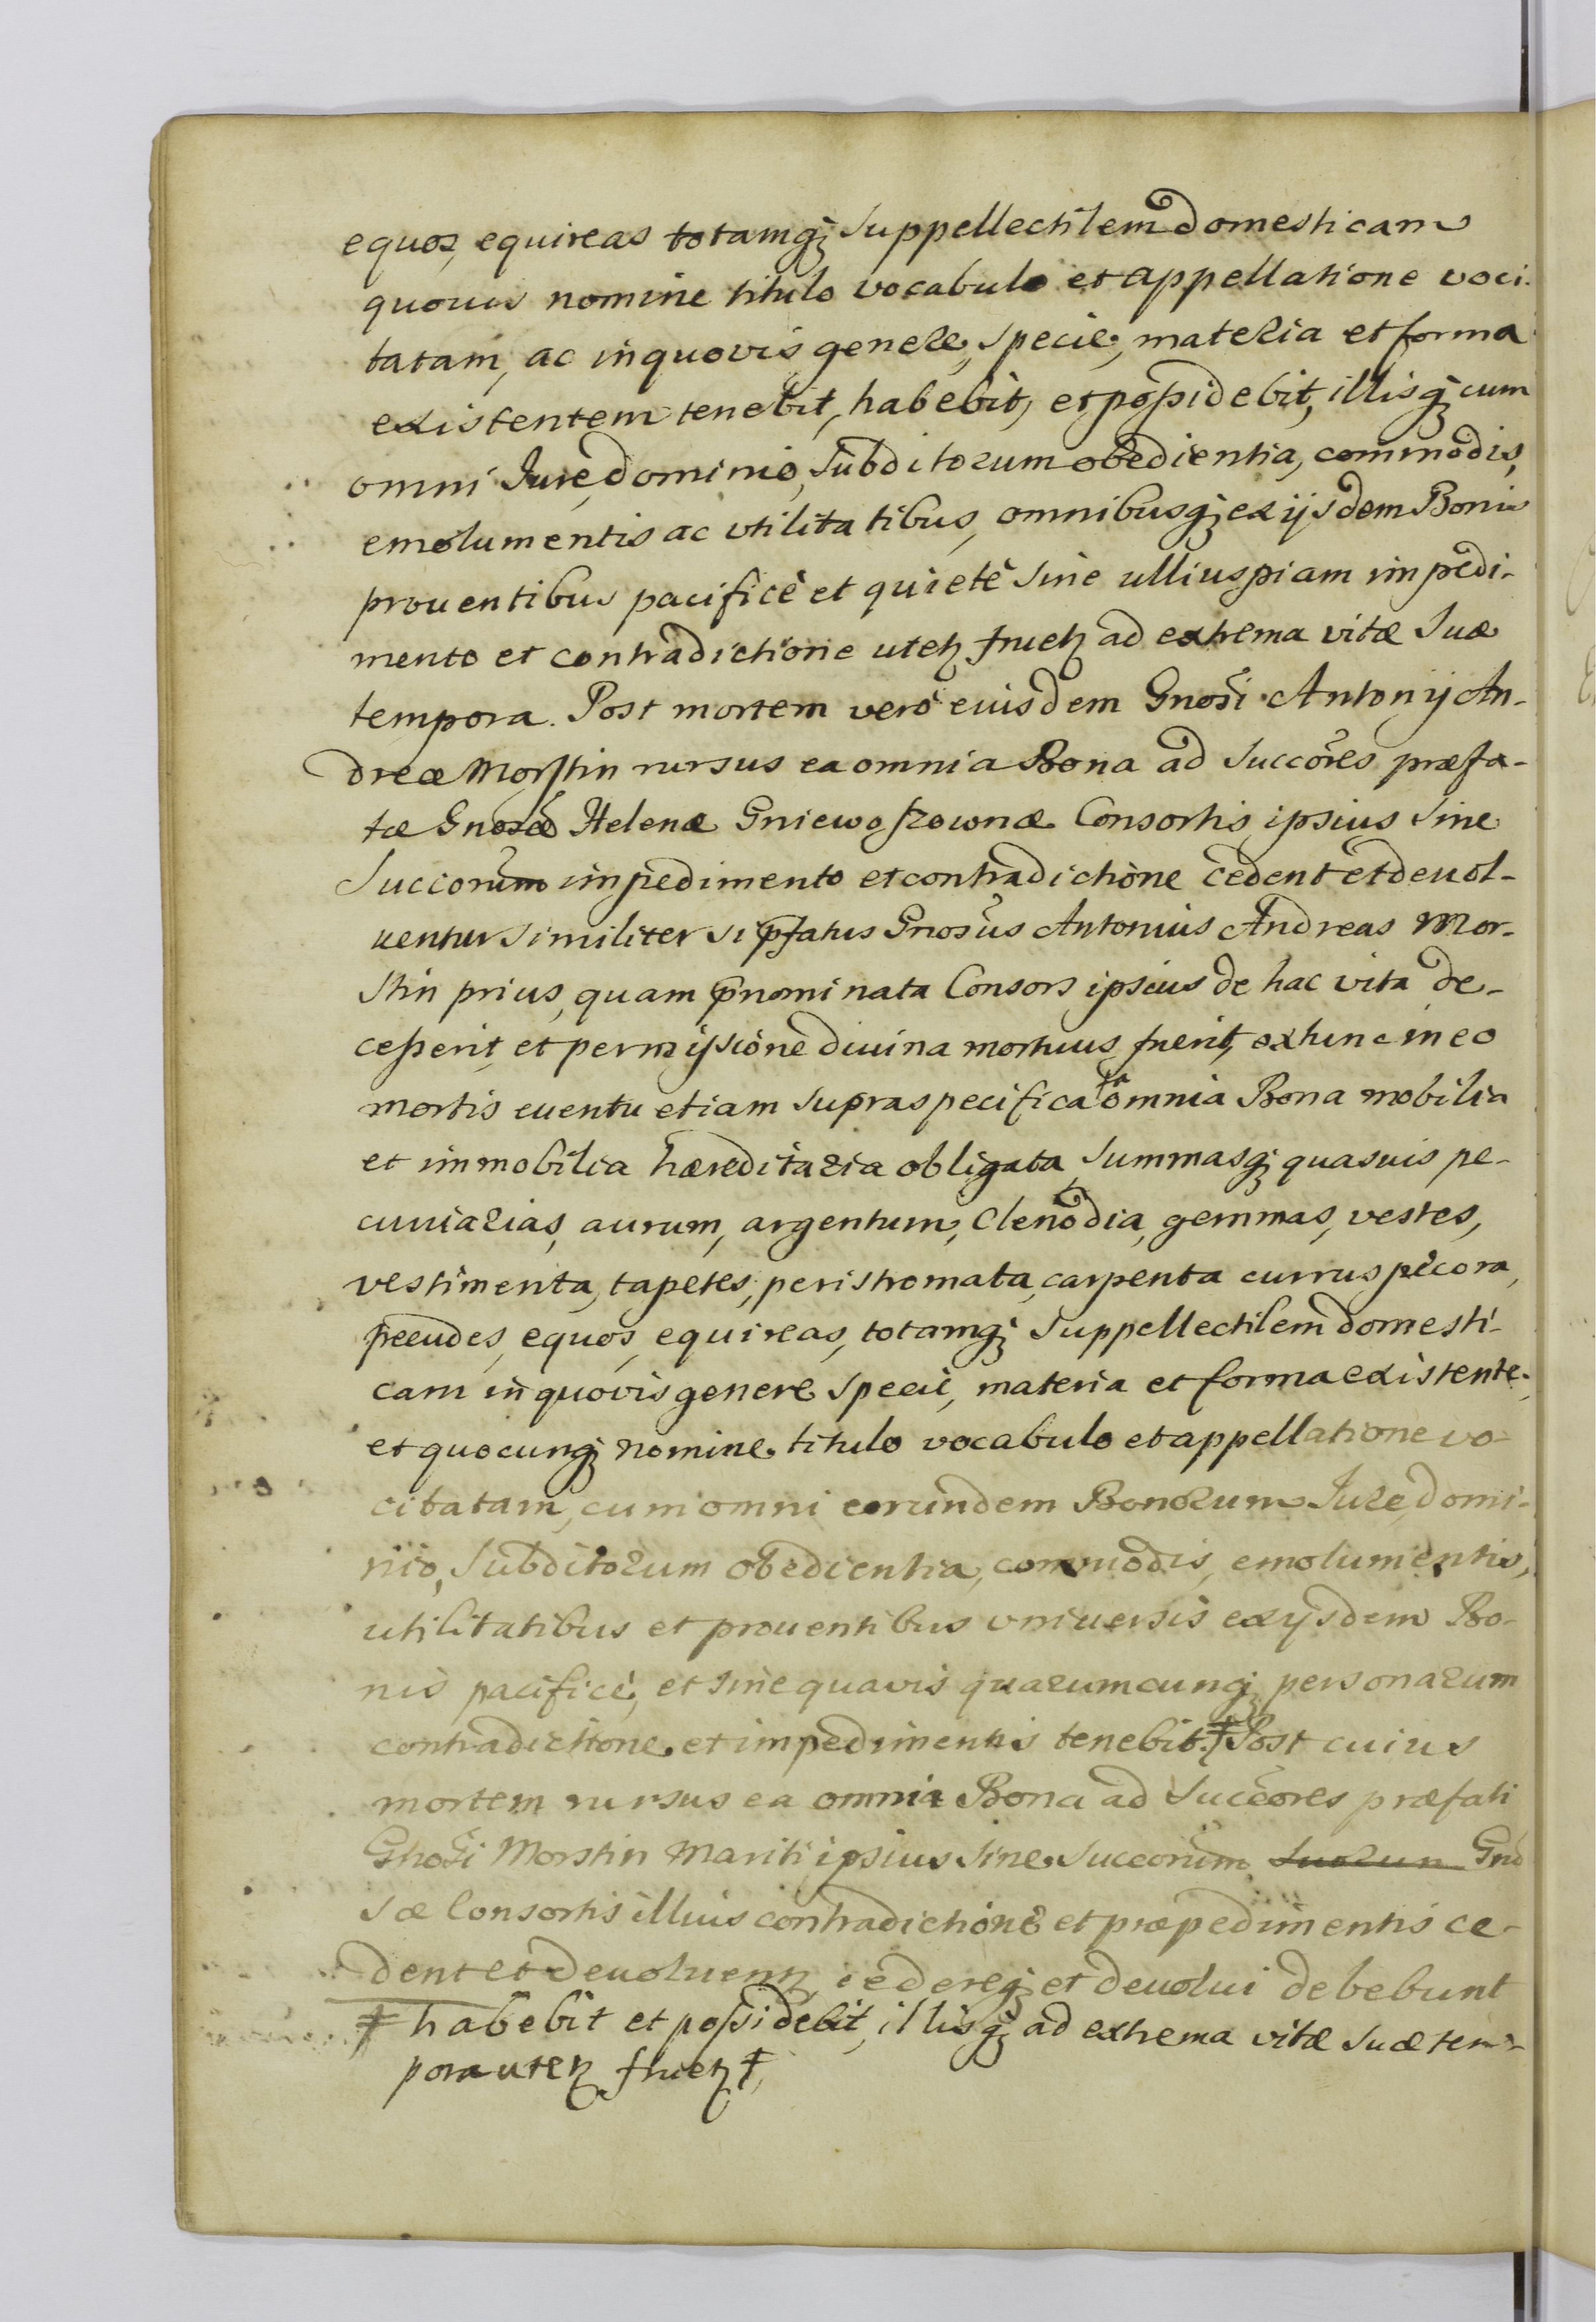 equos, equireas totamq₃ Suppellectilem domesticam
quovis nomine titulo vocabulo et appellatione voci-
tatam, ac in quovis genere, specie, materia et forma
existentem tenebit, habebit, et poßidebit, illisq₃ cum
omni Jure, dominio, subditorum obedientia, commodis,
emolumentis ac vtilitatibus, omnibusq₃ ex ijsdem Bonis
prouentibus pacificè et quietè sine ulliuspiam impedi-
mento et contradictione utet₃ fruet₃ ad extrema vitæ suæ
tempora. Post mortem verò eiusdem Gnosi Antonij An-
dreæ Morstin rursus ea omnia Bona ad Succores præfa-
tæ Gnosæ Helenæ Gniewoszownæ Consortis ipsius sine
Succorum impedimento et contradictione cedent et deuol-
uentur similiter si p̄fatus Gnosus Antonius Andreas Mor-
stin prius, quam p̄nominata Consors ipsius de hac vita de-
ceßerit, et permissione diuina mortuus fuerit, extunc in eo
mortis euentu etiam supraspecificata omnia Bona mobilia
et immobilia hæreditaria obligata, summasq₃ quasuis pe-
cuniarias, aurum, argentum, Clenodia, gemmas, vestes,
vestimenta, tapetes, peristromata, carpenta currus pecora,
pecudes, equos, equireas, totamq₃ Suppellectilem domesti-
cam in quovis genere specie, materia et forma existente,
et quocunq₃ nomine titulo vocabulo et appellatione vo-
citatam, cum omni eorundem Bonorum Jure, domi-
nio, Subditorum obedientia, commodis, emolumentis,
utilitatibus et prouentibus vniuersis ex ijsdem Bo-
nis pacificè, et sine quavis quarumcunq₃ personarum
contradictione et impedimentis tenebit ‡ Post cuius
mortem rursus ea omnia Bona ad Succores præfati
Gnosi Morstin Mariti ipsius sine Succorum suorum Gno
sæ Consortis illius contradictione et præpedimentis ce-
dent et deuoluent₃, cedereq₃ et deuolui debebunt
‡ habebit et possidebit, illisq₃ ad extrema vitæ suæ tem-
pora utet₃ fruet₃ ‡,